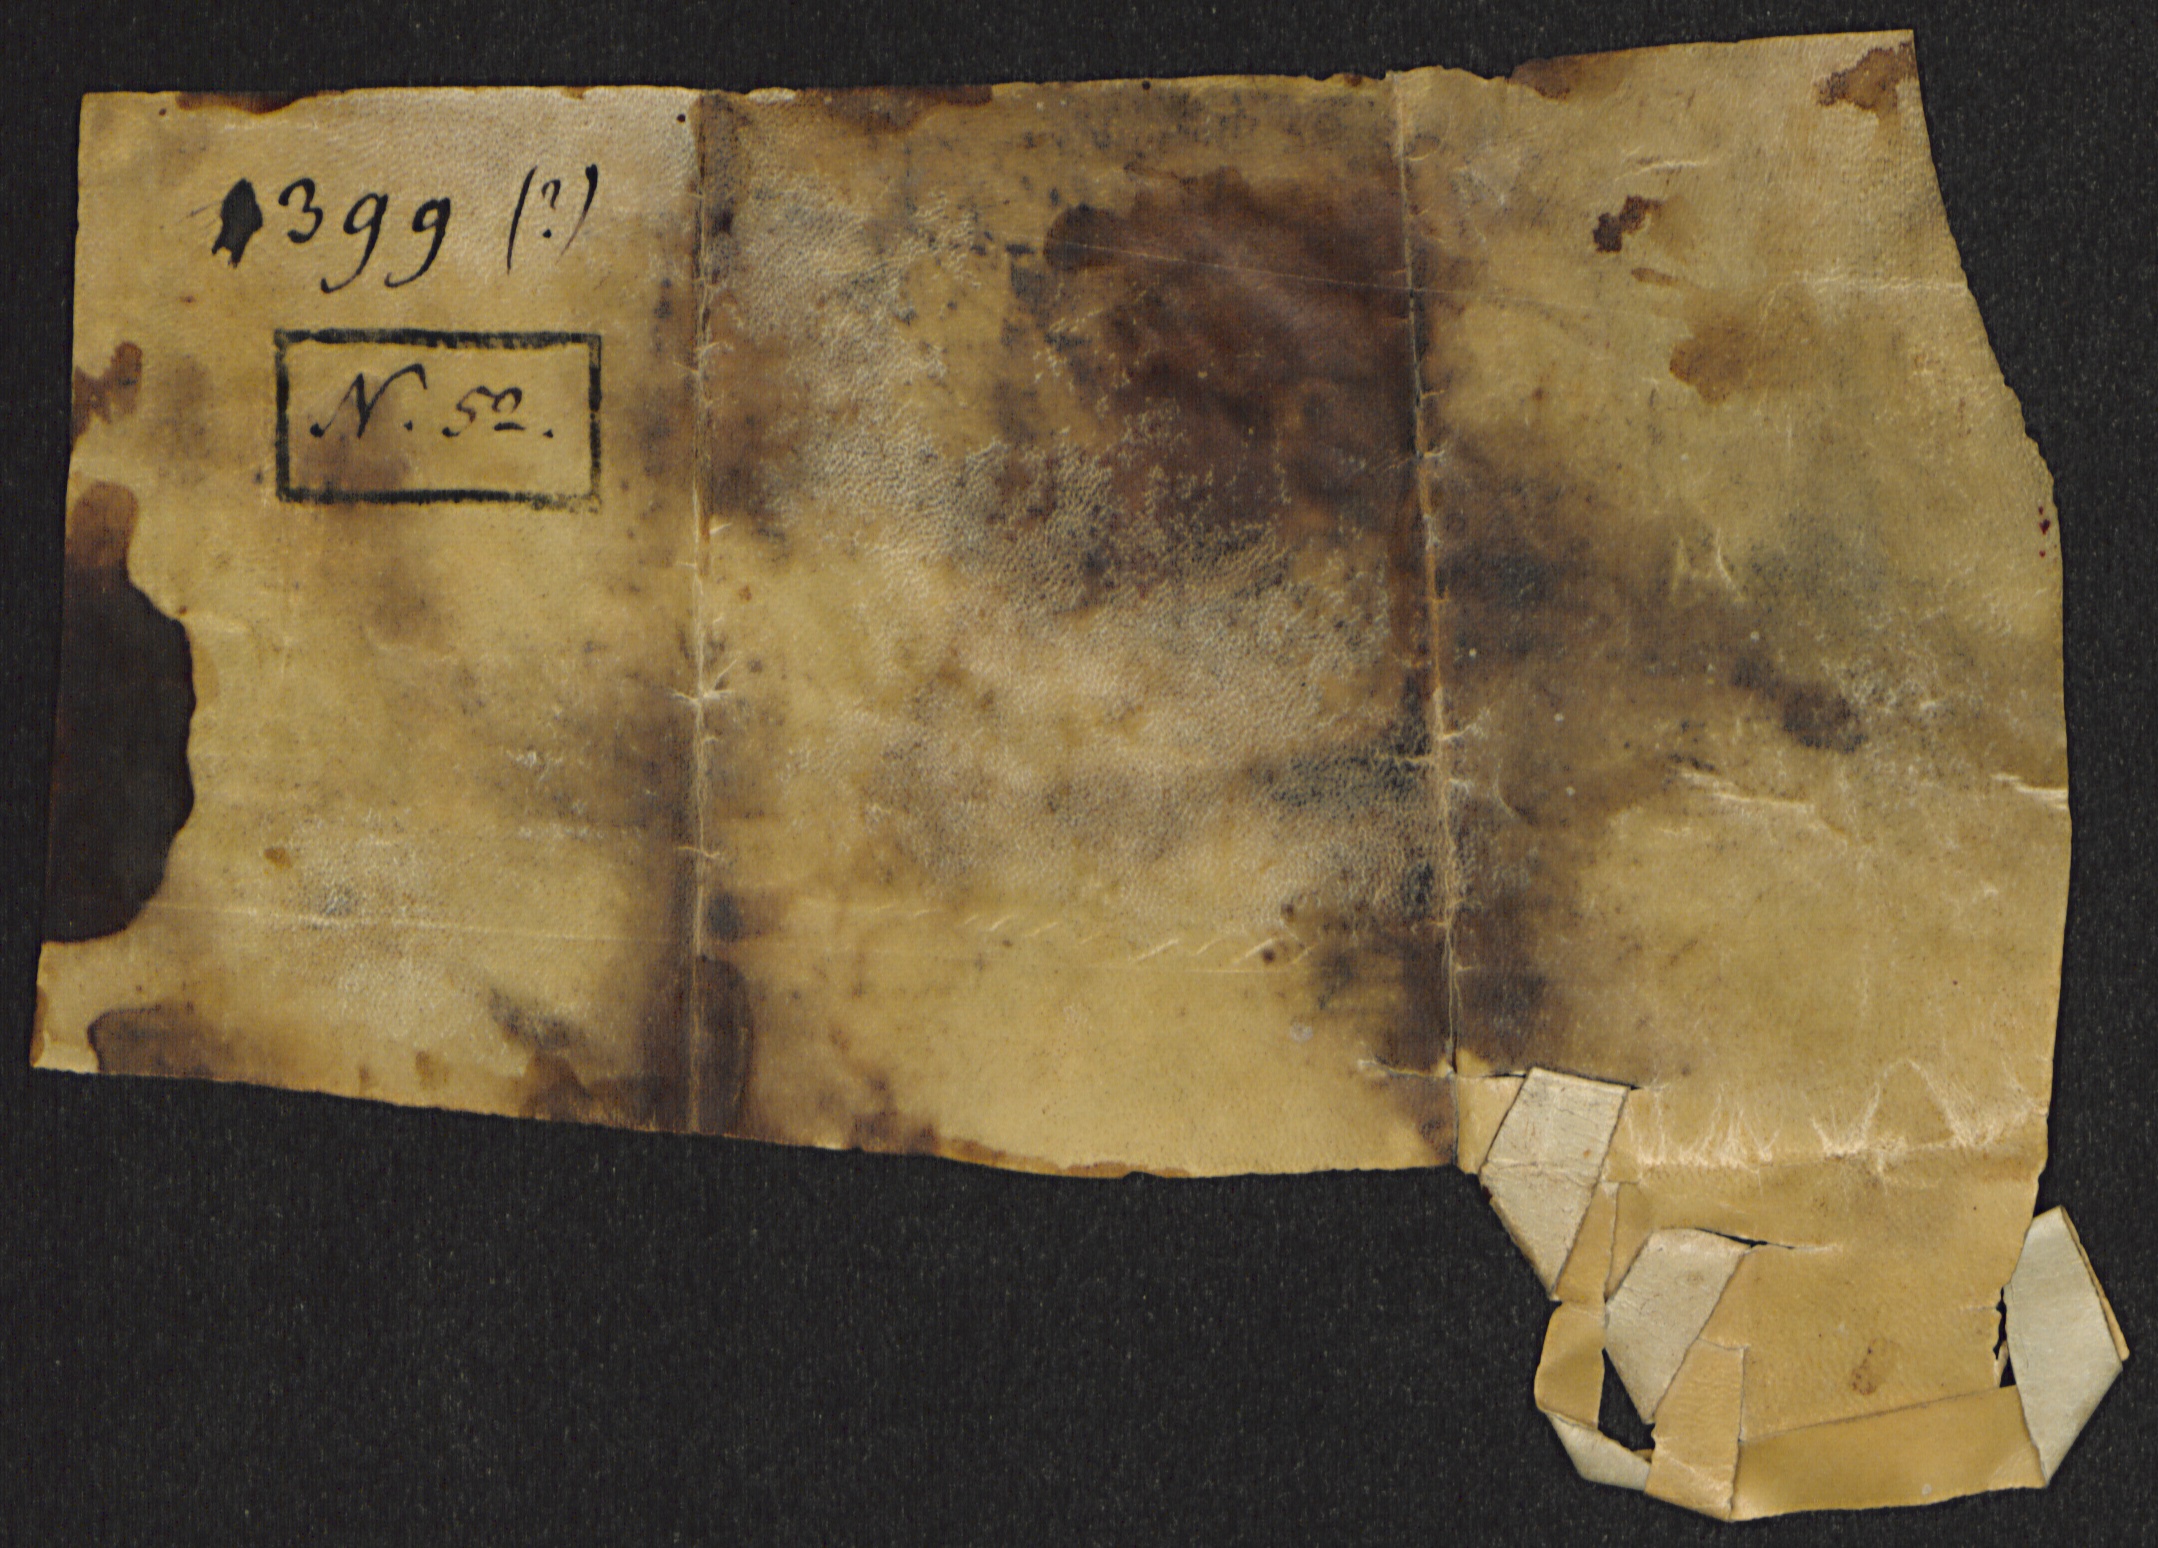 1399 (?)
N. 52.